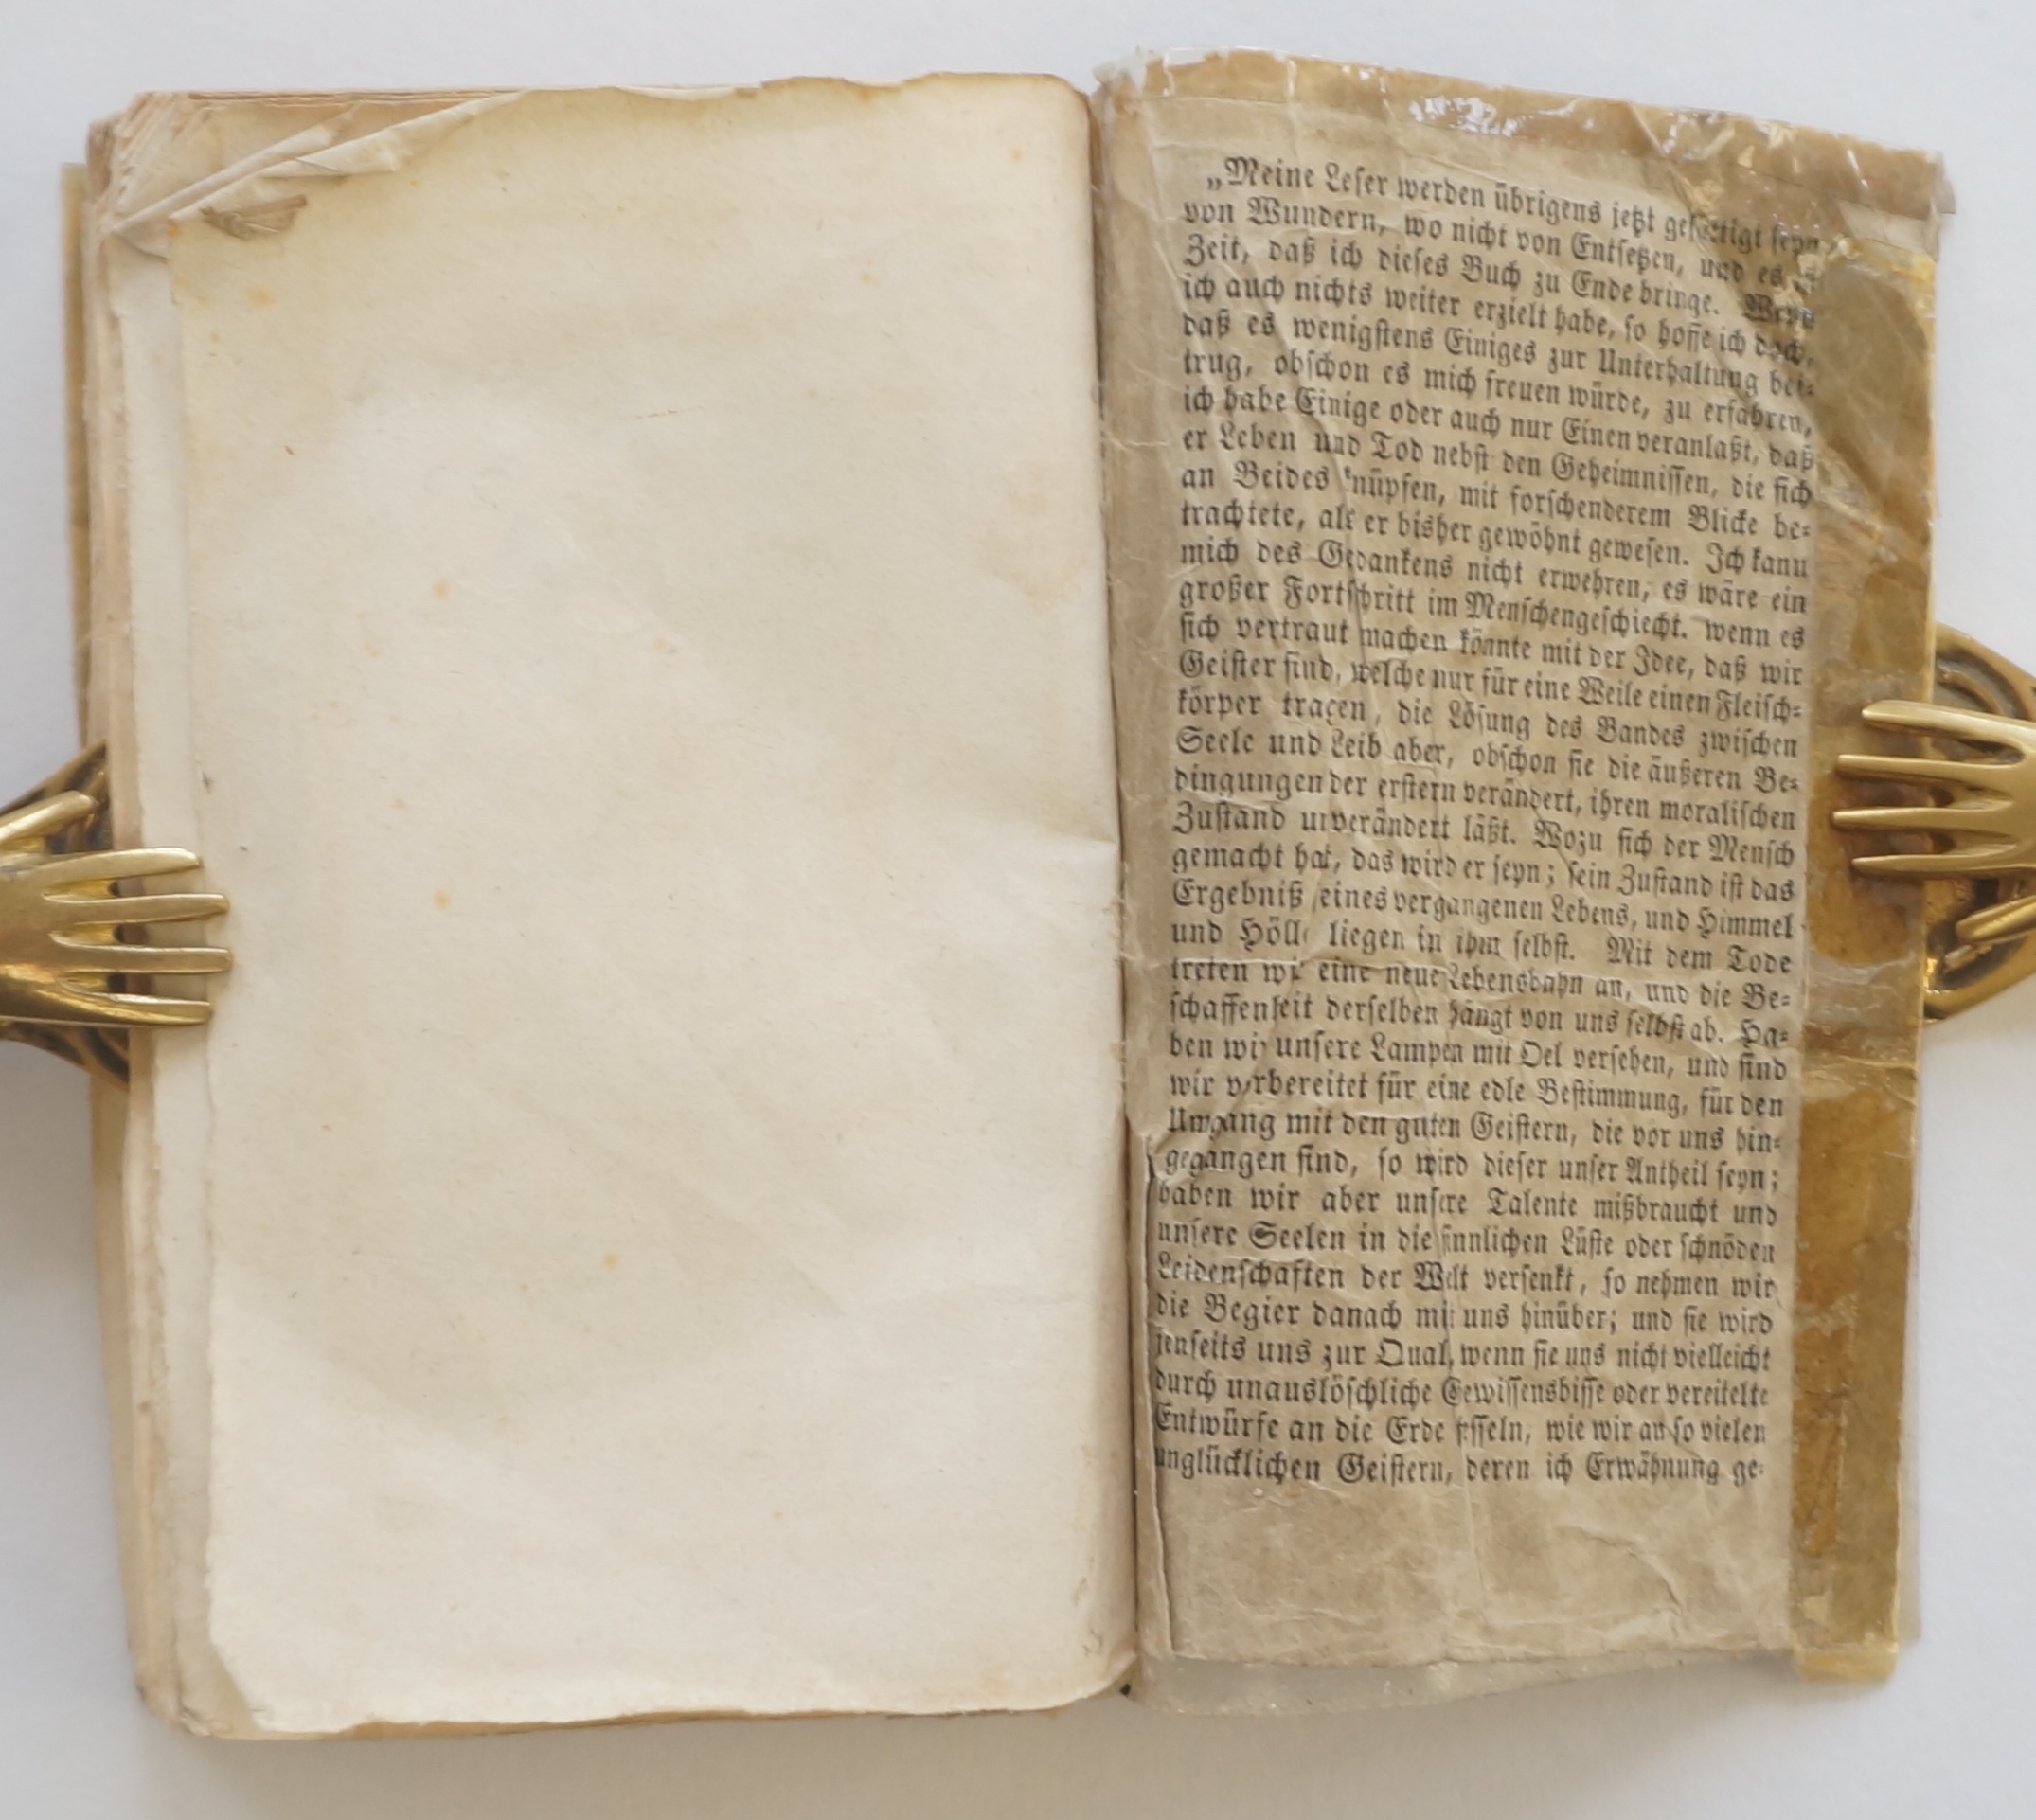 „Meine Leser werden übrigens jetzt gesättigt seyn
von Wundern, wo nicht von Entsetzen, und es ist
Zeit, daß ich dieses Buch zu Ende bringe. Wenn
ich auch nichts weiter erzielt habe, so hoffe ich doch,
daß es wenigstens Einiges zur Unterhaltung bei-
trug, obschon es mich freuen würde, zu erfahren,
ich habe Einige oder auch nur Einen veranlaßt, daß
er Leben und Tod nebst den Geheimnissen, die sich
an Beides knüpfen, mit forschenderem Blicke be-
trachtete, als er bisher gewöhnt gewesen. Ich kann
mich des Gedankens nicht erwehren, es wäre ein
großer Fortschritt im Menschengeschlecht. wenn es
sich vertraut machen könnte mit der Idee, daß wir
Geister sind, welche nur für eine Weile einen Fleisch-
körper tragen, die Lösung des Bandes zwischen
Seele und Leib aber, obschon sie die äußeren Be-
dingungen der erstern verändert, ihren moralischen
Zustand unverändert läßt. Wozu sich der Mensch
gemacht hat, das wird er seyn; sein Zustand ist das
Ergebniß eines vergangenen Lebens, und Himmel
und Hölle liegen in ihm selbst. Mit dem Tode
treten wir eine neue Lebensbahn an, und die Be-
schaffenheit derselben hängt von uns selbst ab. Ha-
ben wir unsere Lampen mit Oel versehen, und sind
wir vorbereitet für eine edle Bestimmung, für den
Umgang mit den guten Geistern, die vor uns hin-
gegangen sind, so wird dieser unser Antheil seyn;
haben wir aber unsere Talente mißbraucht und
unsere Seelen in die sinnlichen Lüste oder schnöden
Leidenschaften der Welt versenkt, so nehmen wir
die Begier danach mit uns hinüber; und sie wird
jenseits uns zur Qual, wenn sie uns nicht vielleicht
durch unauslöschliche Gewissensbisse oder vereitelte
Entwürfe an die Erde fesseln, wie wir an so vielen
unglücklichen Geistern, deren ich Erwähnung ge-